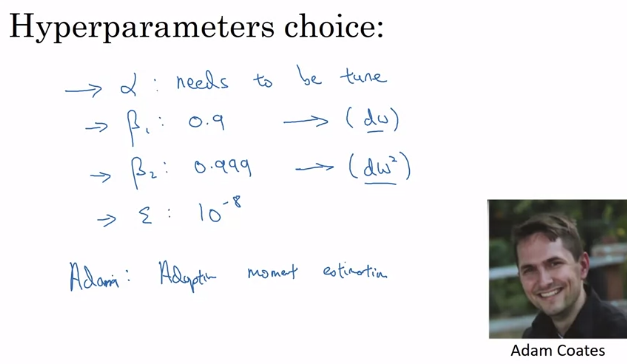 Hyperparameters choice:
→ α : needs to be tune
→ β₁ : 0.9 → (dw)
→ β₂ : 0.999 → (dw²)
→ ε : 10⁻⁸
Adam : Adaptin moment estimation
Adam Coates